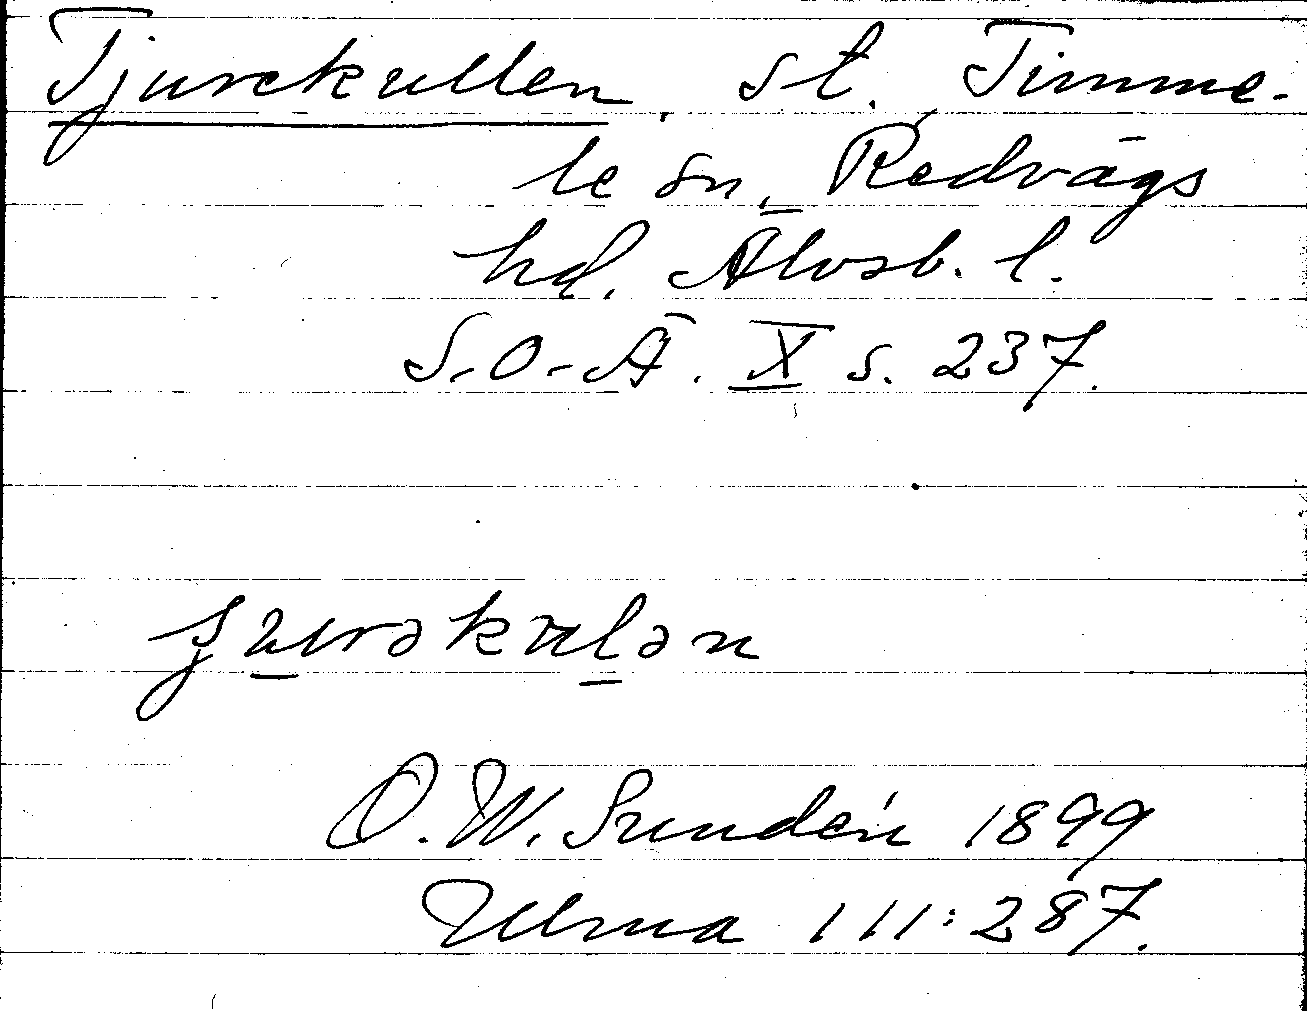 Tjurekullen, st. Timme-
le sn, Redvägs
hd. Älvsb. l.
S.O.Ä. X s. 237.
ʃurəkulən
D. W. Sundén 1899
Ulma 111:287.